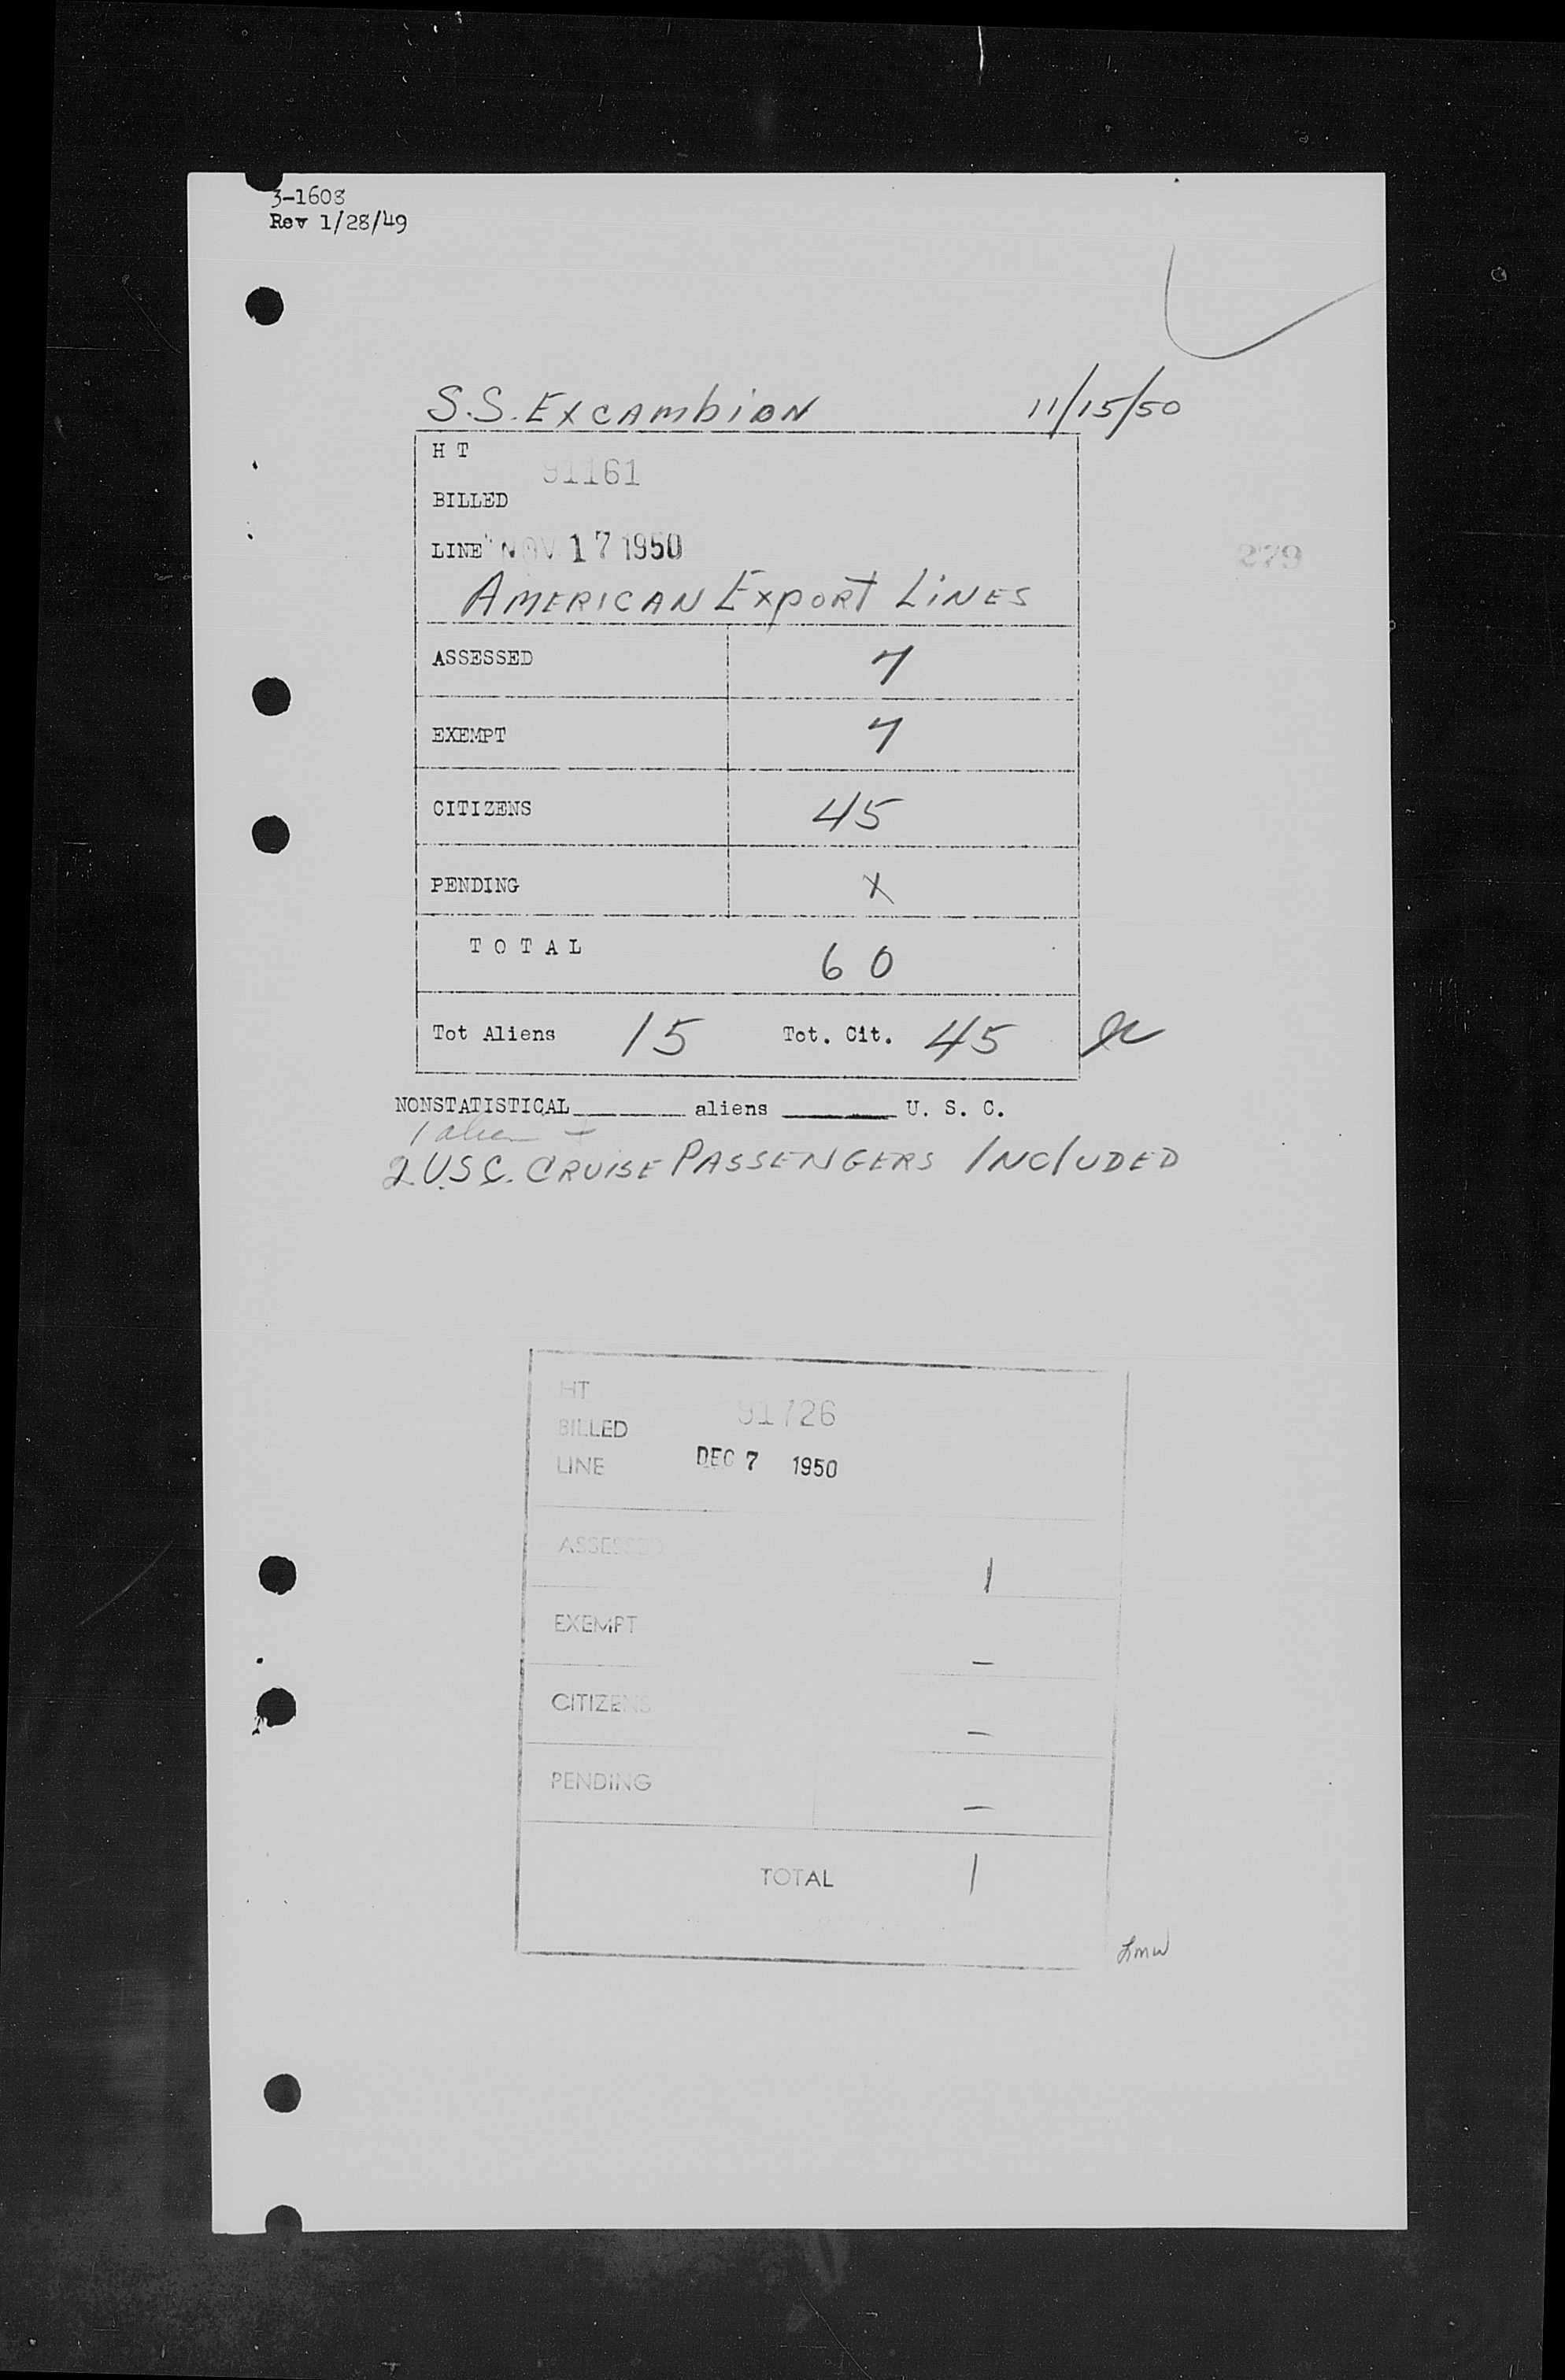 3-1608
Rev 1/28/49
S.S. Excambion 11/15/50
H T
91161
BILLED
LINE NOV 17 1950
279
American Export Lines
ASSESSED 7
EXEMPT 7
CITIZENS 45
PENDING X
T O T A L 60
Tot Aliens 15 Tot. Cit. 45
NONSTATISTICAL______ aliens ______ U. S. C.
1 alien +
2 U.S.C. Cruise Passengers Included
HT
91726
BILLED
LINE DEC 7 1950
ASSESSED 1
EXEMPT –
CITIZENS –
PENDING –
TOTAL 1
LMW